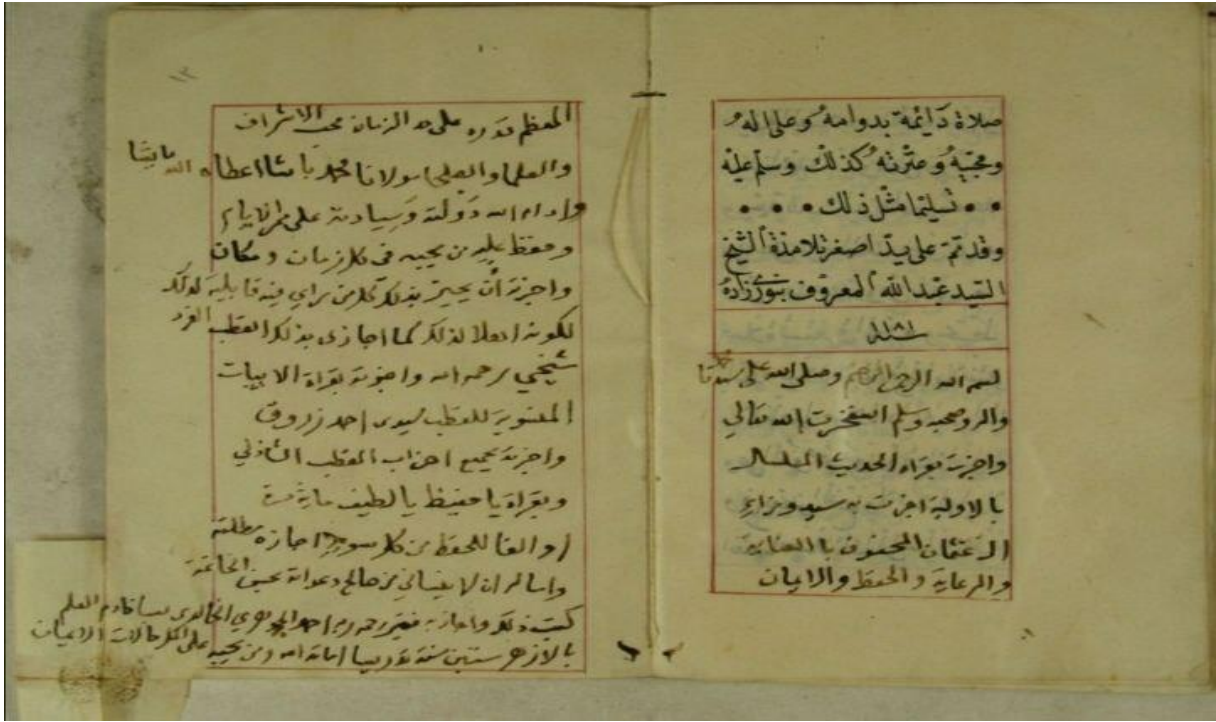 صلاة دائمة بدوامه وعلى اله
ومحبيه وعترته كذلك وسلم عليه
تسليما مثل ذلك
وقد تمت على يد اصغر تلامذة الشيخ
السيد عبد الله المعروف بنوري زاده
سنة ١١٨١
بسم الله الرحمن الرحيم وصلى الله على سيدنا محمد
واله وصحبه وسلم استخرت الله تعالى
واجزت بقراة الحديث المسلسل
بالاولية اجزت به سيد وزراء
ال عثمان المحفوف بالعناية
والرعاية والحفظ والامان
١٣
المعظم قدره على مر الزمان محب الاشراف
والعلما والصلحا مولانا محمد باشا اعطاه الله ما يشا
وادام الله دولته وسيادته على مر الايام
وحفظ من يحبه في كل زمان ومكان
واجزته أن يجيز بذلك كل من راي فيه قابلية لذلك
لكونه اهلا لذلك كما اجازني بذلك القطب الفرد
شيخي رحمه الله واجزته بقراة الابيات
المنسوبة للقطب سيدي احمد زروق
واجزته بجميع احزاب القطب الشاذلي
وبقراة يا حفيظ يا لطيف ماية مرة
او الفا للحفظ من كل سوء اجازة مطلقة
واساله ان لا ينساني من صالح دعواته بحسن الخاتمة
كتب ذلك واجاز به فقير رحمة ربه احمد الجوهري الخالدي خادم العلم
بالازهر ستين سنة تدريسا اماته الله ومن يحبه على اكمل حالات الايمان